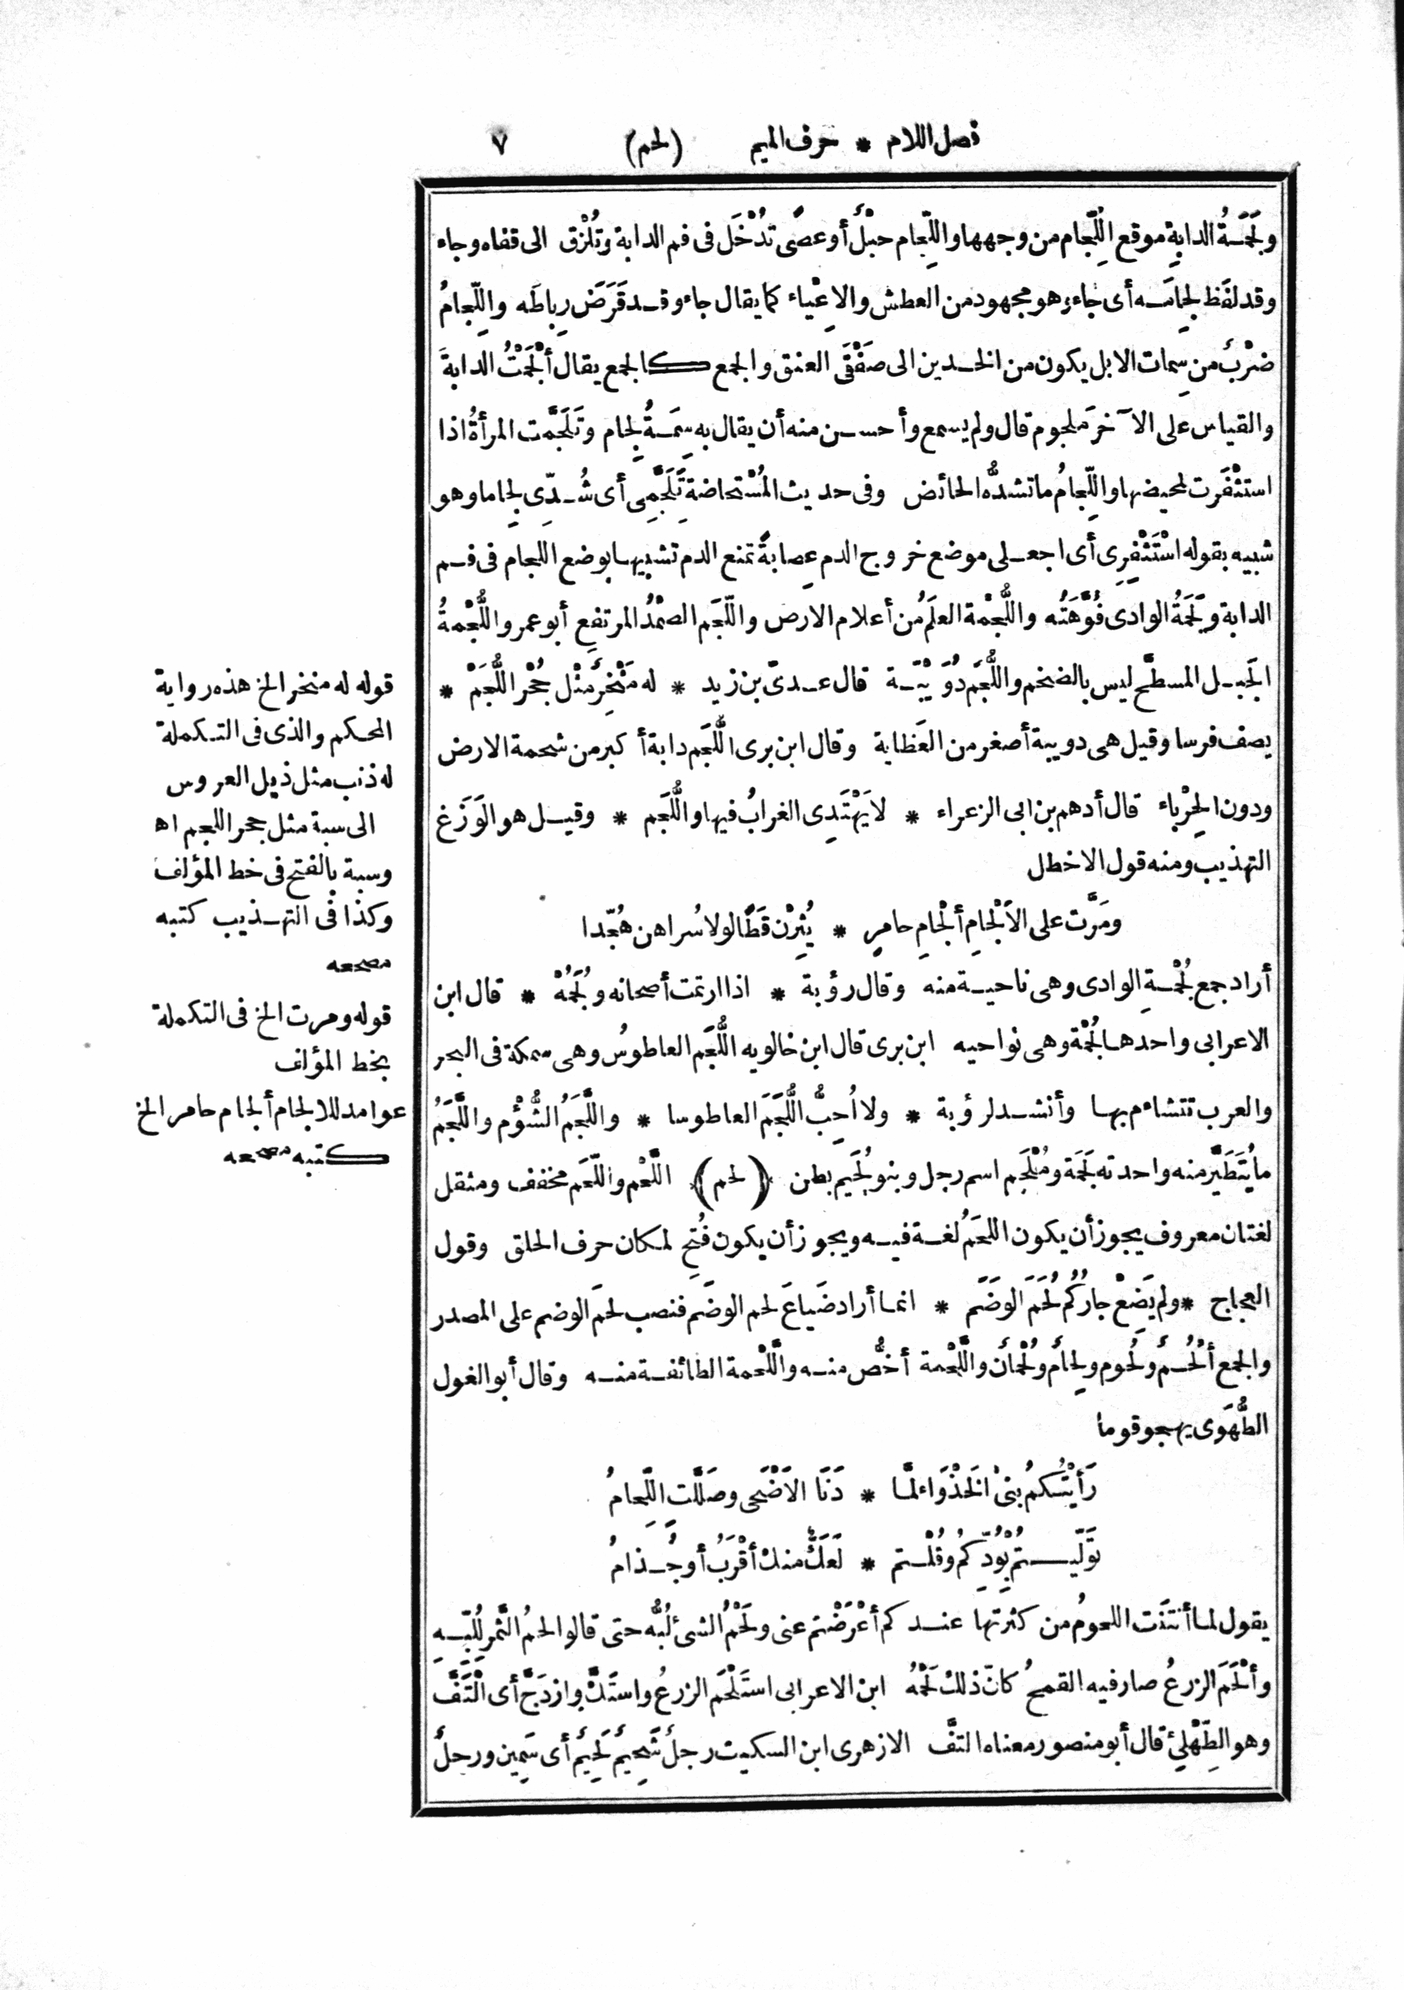 فصل اللام * حرف الميم (لحم) ٧
ولَجَمَةُ الدابة موقع اللِّجام من وجهها واللِّجام حبْلٌ أو عصًى تُدْخَل فى فم الدابة وتُلْزق الى قفاه وجاء
وقد لفَظ لِجامَـه أى جاء وهو مجهود من العطش والاِعْياء كما يقال جاء وقـد قَرَضَ رِباطَه واللِّجامُ
ضرْبٌ من سِمات الابل يكون من الخـدين الى صَفْقَى العنق والجمع كالجمع يقال أَلْجَمْتُ الدابةَ
والقياس على الآخر مَلجوم قال ولم يسمع وأحسـن منه أن يقال به سِمَـةُ لِجام وتَلَجَّمت المرأةُ اذا
استثْفَرت لمحيضها واللِّجامُ ما تشدُّه الحائض وفى حديث المُسْتحاضة تَلَجَّمِى أى شُـدِّى لِجاما وهو
شبيه بقوله اسْتَثْفِرِى أى اجعـلى موضع خروج الدم عِصابةً تمنع الدم تشبيها بوضع اللجام فى فـم
الدابة ولُجْمَةُ الوادى فُوَّهَتُه واللُّجْمة العلَم من أعلام الارض واللَّجَم الصَّمْدُ المرتفع أبو عمرو اللُّجْمةُ
الجَبـل المسطَّح ليس بالضخم واللُّجَم دُوَيْبَّـة قال عـدىّ بن زيد * له مَنْخِرٌ مثْل جُحْر اللُّجَمْ *
يصف فرسا وقيل هى دويبة أصغر من العَظاية وقال ابن برى اللُّجَم دابة أكبر من شحمة الارض
ودون الحِرْباء قال أدهم بن ابى الزعراء * لا يَهْتَدِى الغرابُ فيها واللُّجَم * وقيـل هو الوَزَغ
التهذيب ومنه قول الاخطل
ومَرَّت على الاَلْجامِ أَلْجامِ حامرٍ * يُثِرْن قَطًا لولا سُراهن هُجَّدا
أراد جمع لُجْمـةِ الوادى وهى ناحيـة منه وقال رؤبة * اذا ارتمت أصحانه ولُجَمُهْ * قال ابن
الاعرابى واحدها لُجْمَة وهى نواحيه ابن برى قال ابن خالويه اللُّجَم العاطوسُ وهى سمكة فى البحر
والعرب تتشاءم بها وأنشـد لرؤبة * ولا أُحِبُّ اللُّجَمَ العاطوسا * واللَّجَمُ الشُّؤْم واللَّجَمُ
ما يُتَطَيَّر منه واحدته لَجَمَة ومُلْجَم اسم رجل وبنو لُجَيم بطن (لحم) اللَّحْم واللَّحَم مخفف ومثقل
لغتان معروف يجوز أن يكون اللحَمُ لغـة فيـه ويجوز أن يكون فُتِح لمكان حرف الحلق وقول
العجاج * ولم يَضِعْ جارُكُم لَحْمَ الوضَم * انما أراد ضَياعَ لحم الوضَم فنصب لحمَ الوضم على المصدر
والجمع أَلْحُـمٌ ولُحوم ولِحامٌ ولُحْمانٌ واللَّحْمة أخصُّ منـه واللَّحْمة الطائفـة منـه وقال أبو الغول
الطُّهَوى يهجو قوما
رَأَيْتُكمُ بنى الخَذْوَاءِ لمَّا * دَنَا الاَضْحَى وصَلَّلَتِ اللِّحامُ
تَوَلَّيـتمُ بِوُدِّكمُ وقُلْـتم * لَعَكٌّ منك أقْرَبُ أوجُـذامُ
يقول لما أنتَنَت اللحومُ من كثرتها عنـدكم أعْرَضْتم عنى ولَحْمُ الشئ لُبُّه حتى قالوا لحمُ الثَّمَرِ لِلُبِّـهِ
وأَلْحَمَ الزرعُ صار فيه القمحُ كانّ ذلك لَحْمُه ابن الاعرابى استَلْحَم الزرعُ واستَكَّ وازدَجَّ أى الْتَفَّ
وهو الطِّهْلِئُ قال أبو منصور معناه التفَّ الازهرى ابن السكيت رجلٌ شَحِيمٌ لَحِيمٌ أى سَمِين ورجلٌ
قوله له منخر الخ هذه رواية
المحكم والذى فى التـكملة
له ذنب مثل ذيل العروس
الى سبة مثل جحر اللجم اه
وسبة بالفتح فى خط المؤلف
وكذا فى التهـذيب كتبه
مصححه
قوله ومرت الخ فى التكملة
بخط المؤلف
عوامد للالجام ألجام حامر الخ
كتبه مصححه